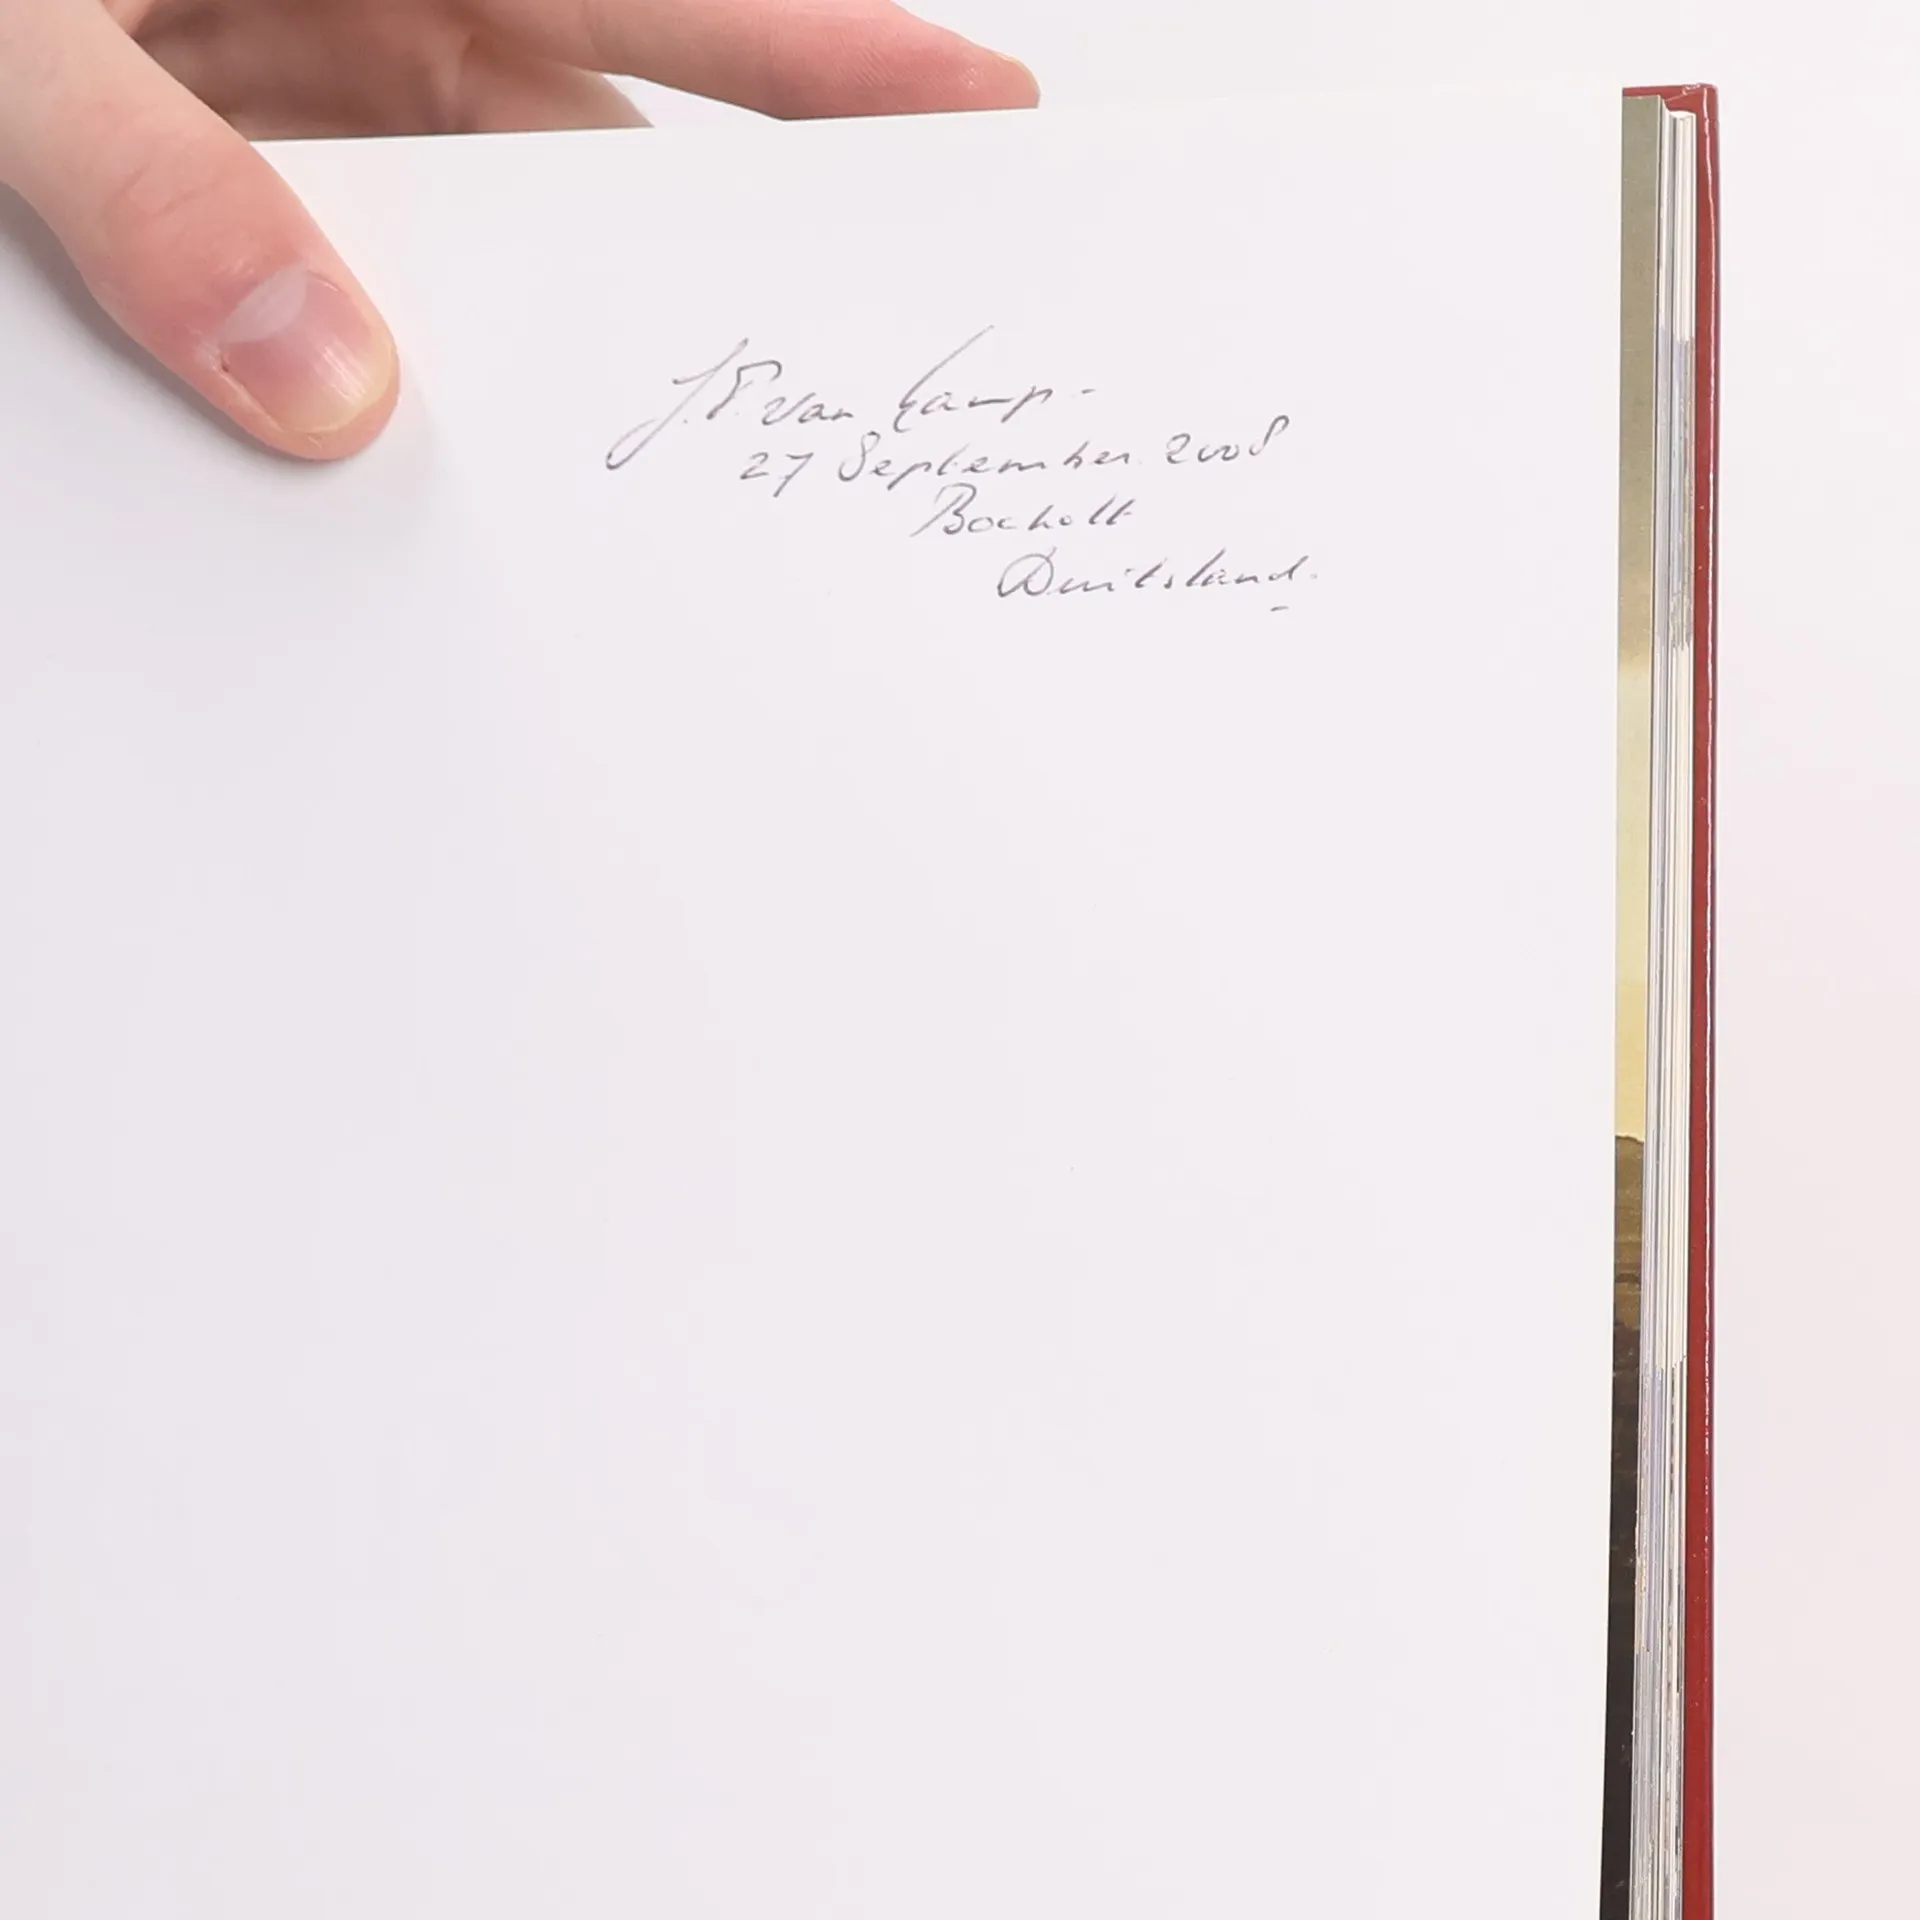 J.F. van Kamp-
27 September 2008
Bocholt
Duitsland.